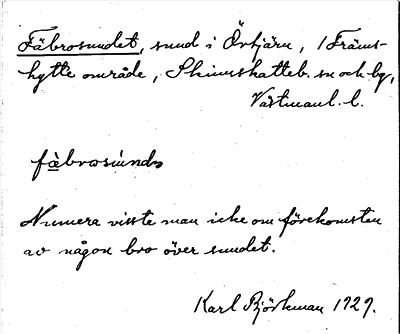 Fäbrosundet, sund i Örtjärn, i Främs-
hytte område, Skinnskatteb. sn och bg,
Västmanl. l.
fä̀brosúndə
Numera visste man icke om förekomsten
av någon bro över sundet.
Karl Björkman 1929.